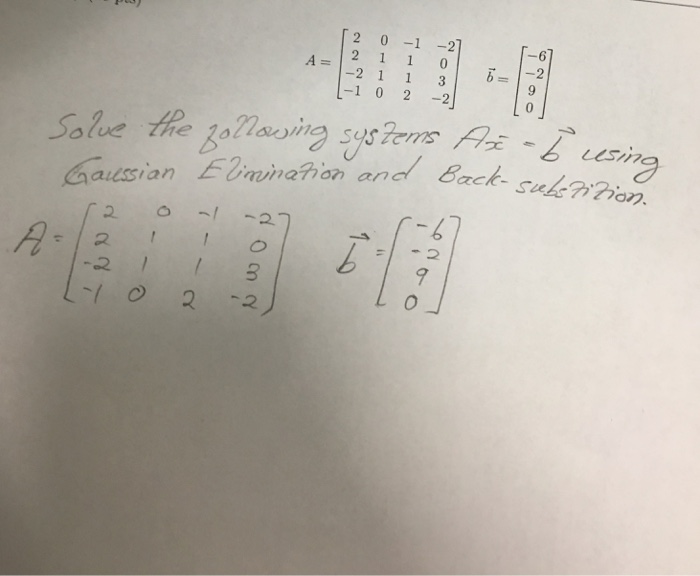 A = [ 2 0 -1 -2 ] b⃗ = [ -6 ]
[ 2 1 1 0 ] [ -2 ]
[ -2 1 1 3 ] [ 9 ]
[ -1 0 2 -2 ] [ 0 ]
Solve the following systems Ax̄ = b⃗ using
Gaussian Elimination and Back-substition.
A = [ 2 0 -1 -2 ] b⃗ = [ -6 ]
[ 2 1 1 0 ] [ -2 ]
[ -2 1 1 3 ] [ 9 ]
[ -1 0 2 -2 ] [ 0 ]